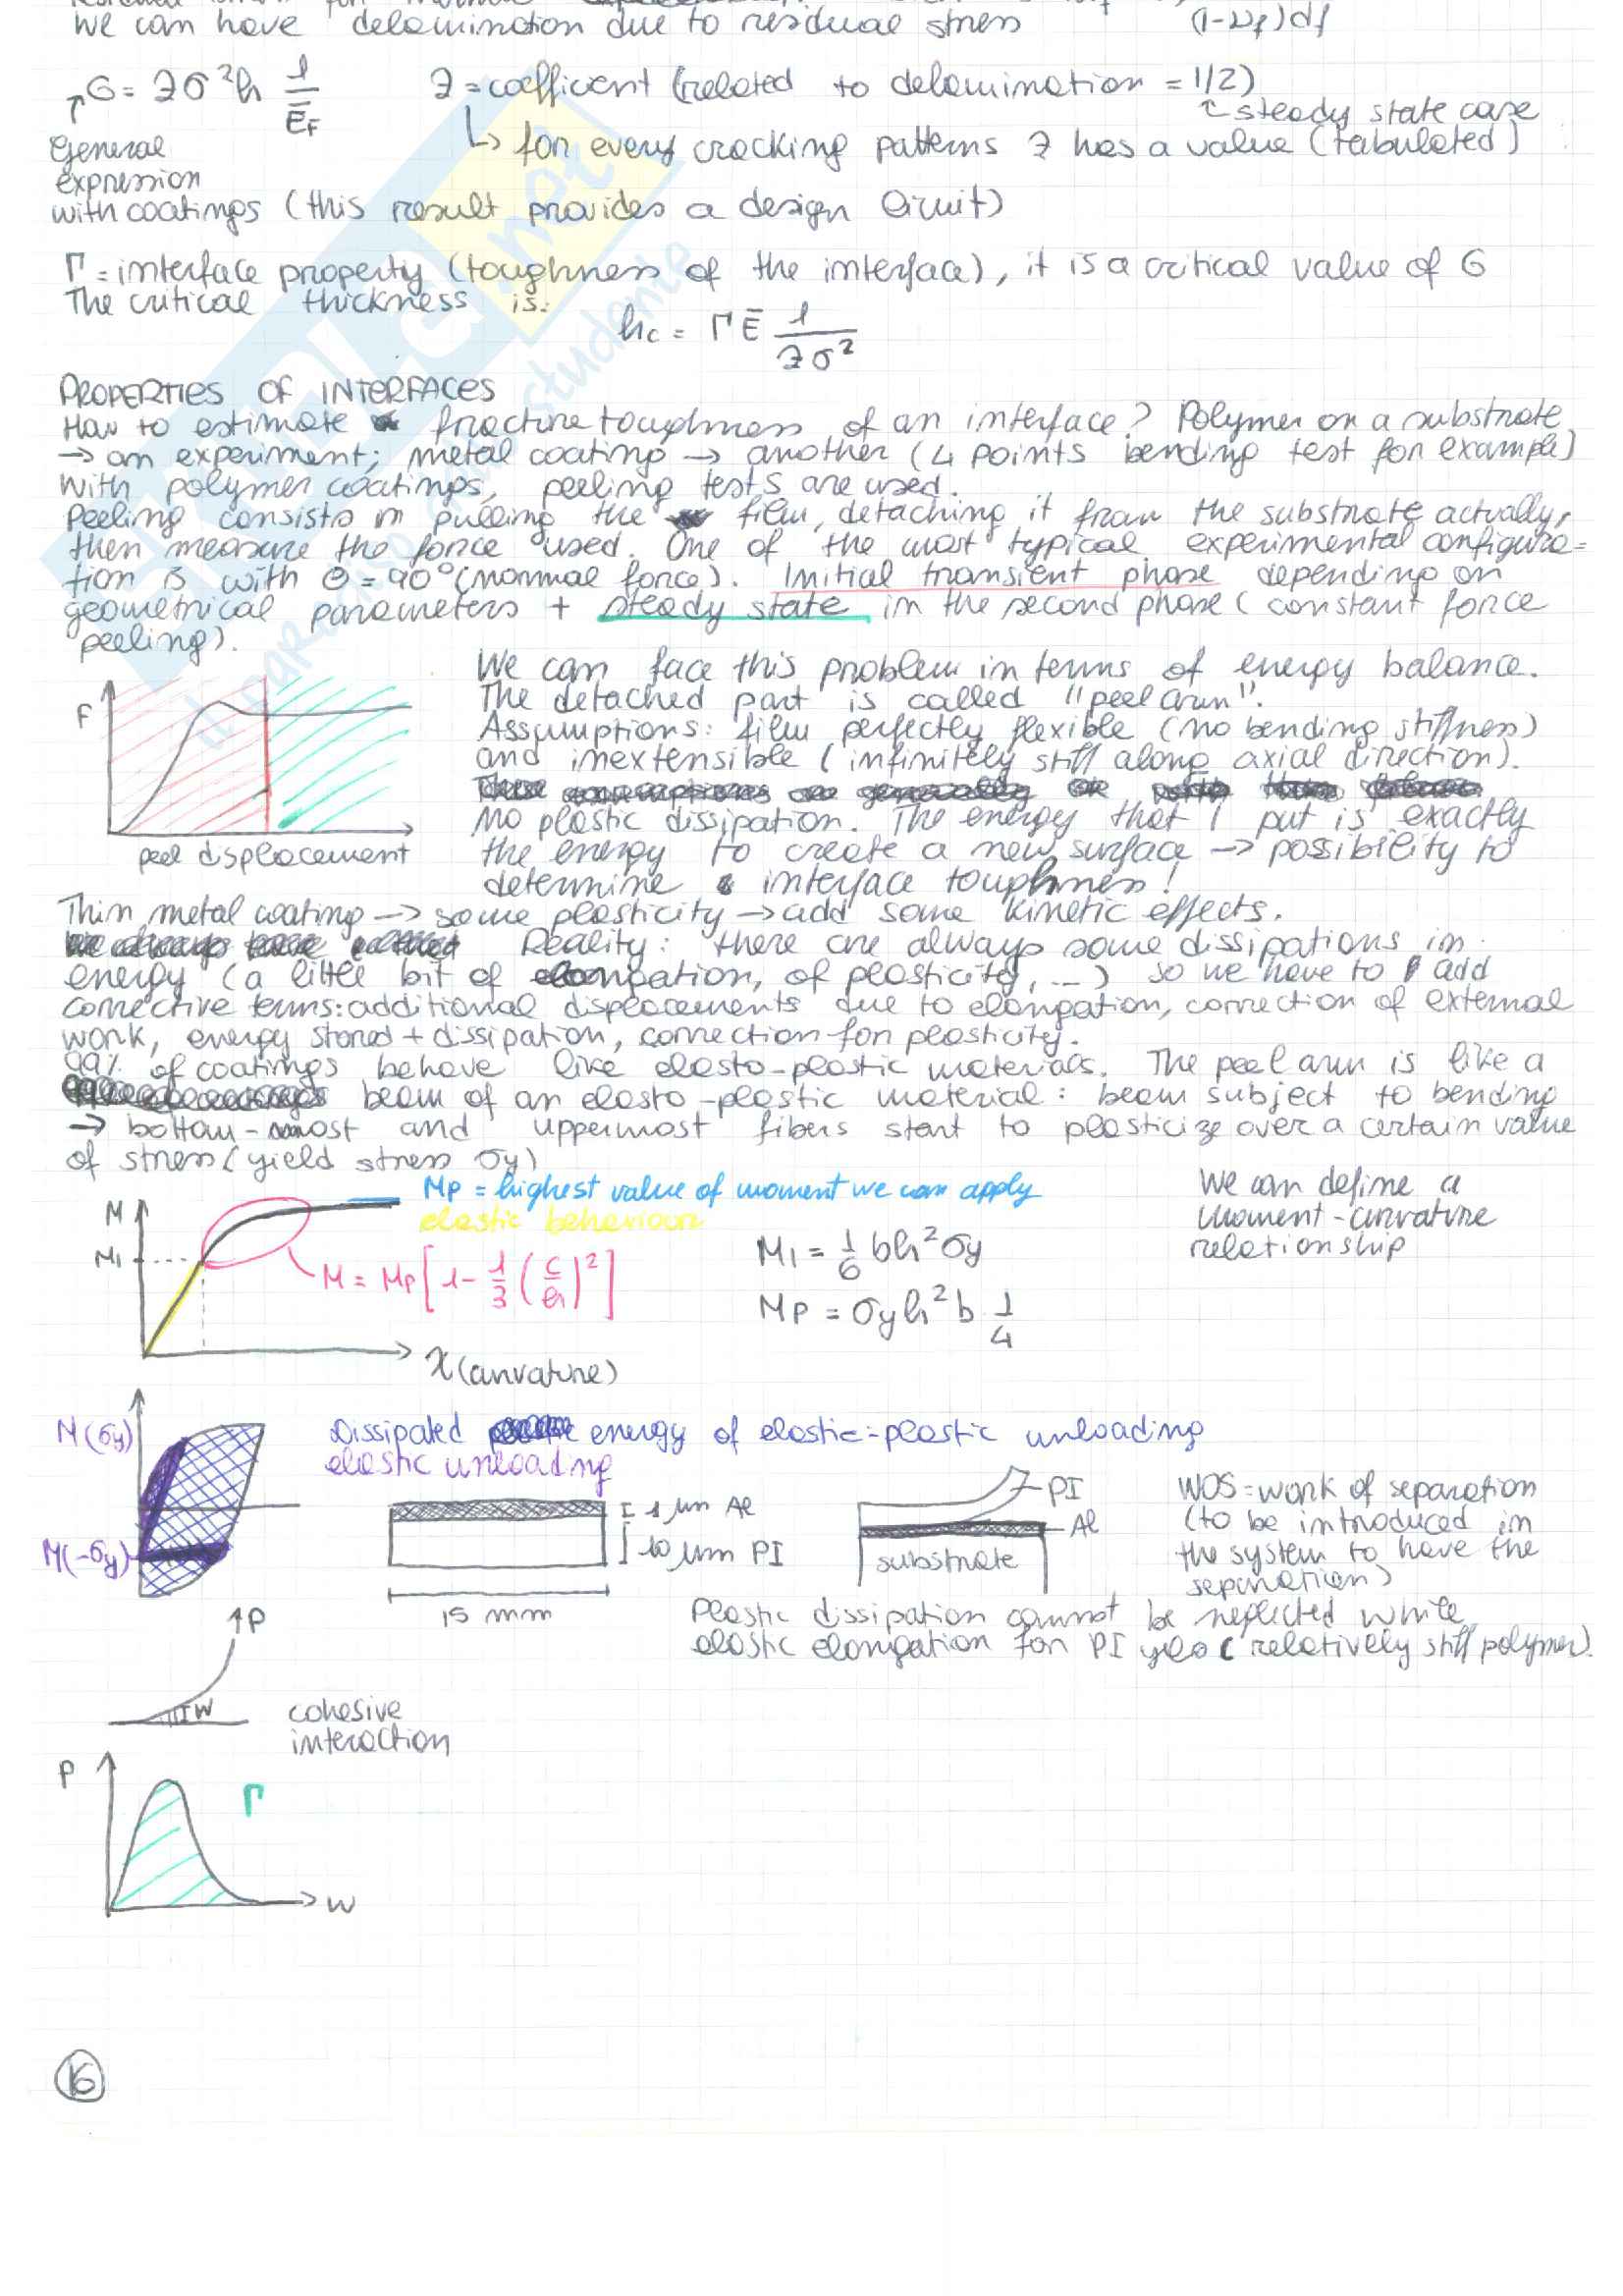 we can have delamination due to residual stress (1-νf)df
G = Zσ²h 1/ĒF Z = coefficient (related to delamination = 1/2)
↑ steady state case
General ↳ for every cracking patterns Z has a value (tabulated)
expression
with coatings (this result provides a design limit)
Γ = interface property (toughness of the interface), it is a critical value of G
The critical thickness is:
hc = Γ Ē 1/Zσ²
PROPERTIES OF INTERFACES
How to estimate fracture toughness of an interface? Polymer on a substrate
→ an experiment; metal coating → another (4 points bending test for example)
With polymer coatings, peeling tests are used.
Peeling consists in pulling the film, detaching it from the substrate actually,
then measure the force used. One of the most typical experimental configura=
tion is with θ = 90° (normal force). Initial transient phase depending on
geometrical parameters + steady state in the second phase (constant force
peeling).
We can face this problem in terms of energy balance.
The detached part is called "peel arm".
Assumptions: film perfectly flexible (no bending stiffness)
and inextensible (infinitely stiff along axial direction).
No plastic dissipation. The energy that I put is exactly
the energy to create a new surface → possibility to
determine interface toughness!
F
peel displacement
Thin metal coating → some plasticity → add some kinetic effects.
Reality: there are always some dissipations in
energy (a little bit of elongation, of plasticity, ...) so we have to add
corrective terms: additional displacements due to elongation, correction of external
work, energy stored + dissipation, correction for plasticity.
99% of coatings behave like elasto-plastic materials. The peel arm is like a
beam of an elasto-plastic material: beam subject to bending
→ bottom-most and uppermost fibers start to plasticize over a certain value
of stress (yield stress σy)
M
MP = highest value of moment we can apply
elastic behaviour
M1
M = MP [1 - 1/3 (c/h)²]
χ (curvature)
M1 = 1/6 bh²σy
MP = σyh²b 1/4
We can define a
moment-curvature
relationship
M(σy)
M(-σy)
Dissipated energy of elastic-plastic unloading
elastic unloading
1 μm Al
10 μm PI
15 mm
PI
Al
substrate
WOS = work of separation
(to be introduced in
the system to have the
separation)
Plastic dissipation cannot be neglected while
elastic elongation for PI yes (relatively stiff polymer).
P
W
cohesive
interaction
P
Γ
W
16